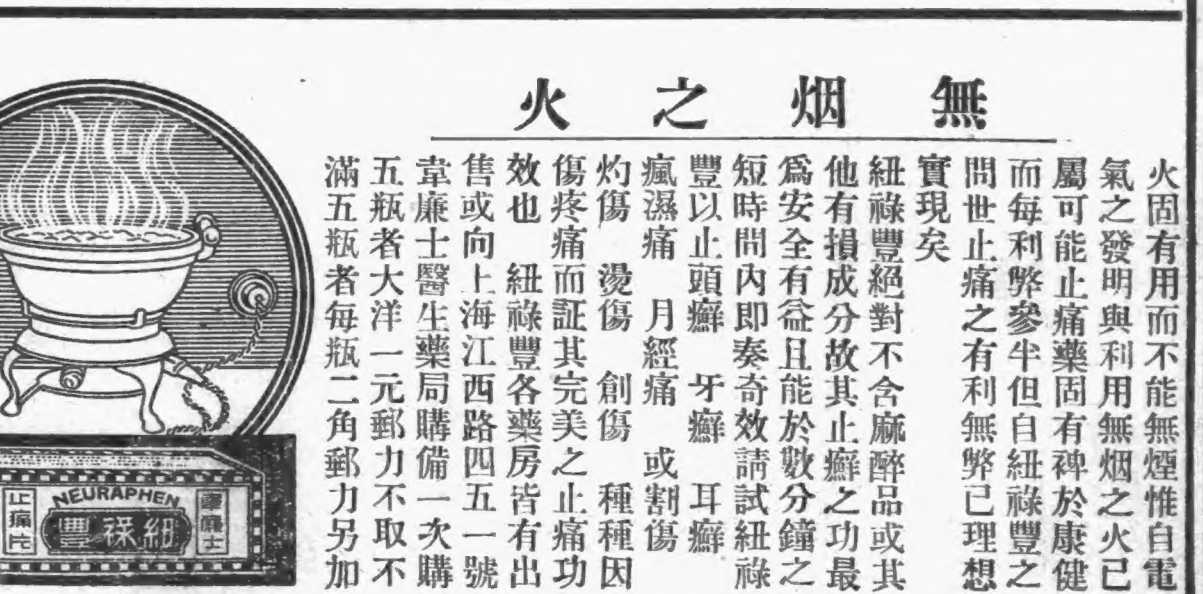 無烟之火
火固有用而不能無煙惟自電
氣之發明與利用無烟之火已
屬可能止痛藥固有裨於康健
而每利弊參半但自紐祿豐之
問世止痛之有利無弊已理想
實現矣
紐祿豐絕對不含麻醉品或其
他有損成分故其止癬之功最
為安全有益且能於數分鐘之
短時間內即奏奇效請試紐祿
豐以止頭癬 牙癬 耳癬
瘋濕痛 月經痛 或割傷
灼傷 燙傷 創傷 種種因
傷疼痛而証其完美之止痛功
效也 紐祿豐各藥房皆有出
售或向上海江西路四五一號
韋廉士醫生藥局購備一次購
五瓶者大洋一元郵力不取不
滿五瓶者每瓶二角郵力另加
NEURAPHEN
韋廉士
紐祿豐
止痛片